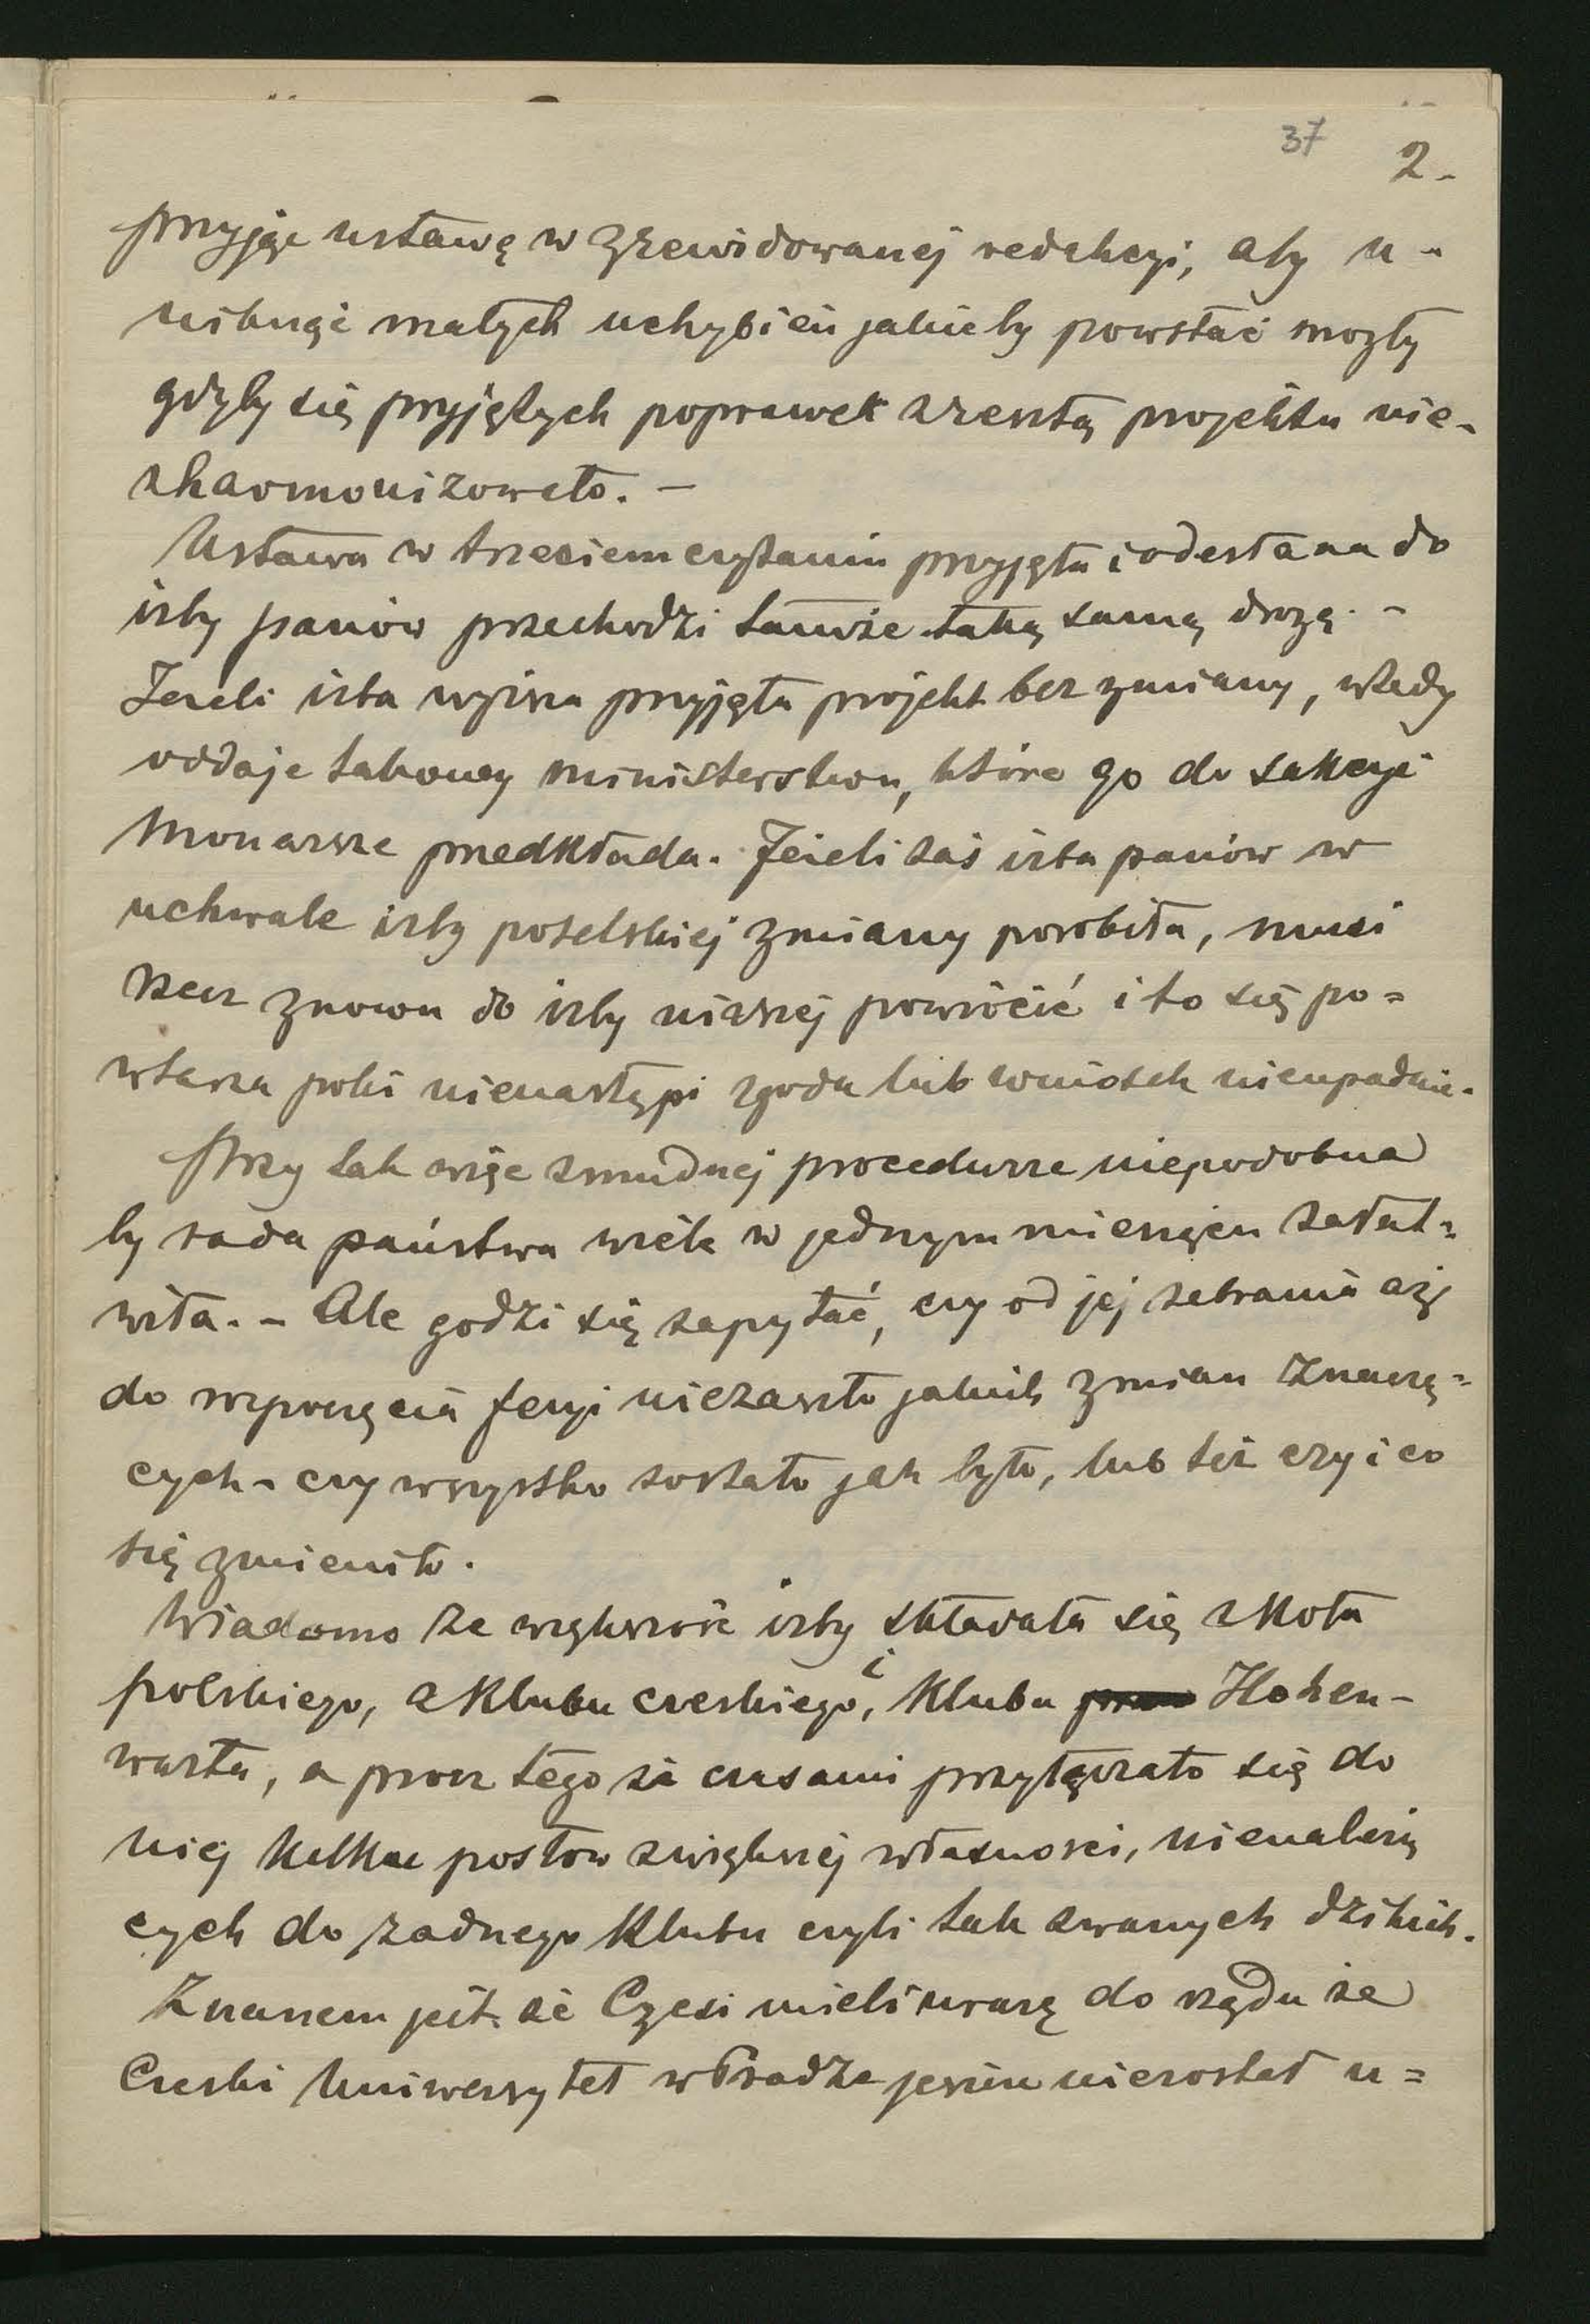 37 2.
przyjąć ustawę w zrewidowanej redakcyi, aby u-
niknąć małych uchybień jakieby powstać mogły
gdyby się przyjętych poprawek zresztą projektu nie-
zharmonizowało. -
Ustawa w trzeciem czytaniu przyjęta i odesłana do
izby panów przechodzi tamże taką samą drogą. -
Jeżeli izba wyższa przyjęła projekt bez zmiany, wtedy
oddaje takowy ministerstwu, które go do sankcyi
Monarsze przedkłada. Jeżeli zaś izba panów w
uchwale izby poselskiej zmiany porobiła, musi
rzecz znowu do izby niższej powrócić i to się po=
wtarza póki nienastąpi zgoda lub wniosek nieupadnie.
Przy tak więc żmudnej procedurze niepodobna
by rada państwa wiele w jednym miesiącu załat=
wiła. - Ale godzi się zapytać, czy od jej zebrania aż
do rozpoczęcia feryi niezaszło jakich zmian znaczą=
cych - czy wszystko zostało jak było, lub też czy i co
się zmieniło.
Wiadomo że większość izby składała się z Koła
polskiego, z Klubu czeskiego, i Klubu Hohen-
warta, a prócz tego że czasami przyłączało się do
niej kilku posłów z większej własności, nienależą
cych do żadnego Klubu czyli tak zwanych dzikich.
Znanem jest że Czesi mieli urazę do rządu że
Czeski Uniwersytet w Pradze jeszcze niezostał u=